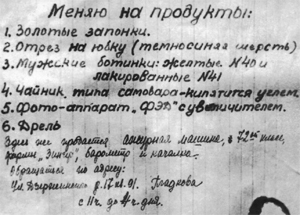 Меняю на продукты:
1. Золотые запонки.
2. Отрез на юбку (темносиняя шерсть)
3. Мужские ботинки: желтые №40 и
лакированные №41
4. Чайник типа самовара-кипятится углем.
5. Фото-аппарат "ФЭД" с увеличителем.
6. Дрель
Здесь же продается ажурная машина, в 72
фирмы "Зингер", барометр и качалка.
Обращаться по адресу:
Ул. Дзержинского д. 17 кв.
с 11 ч. до дня.